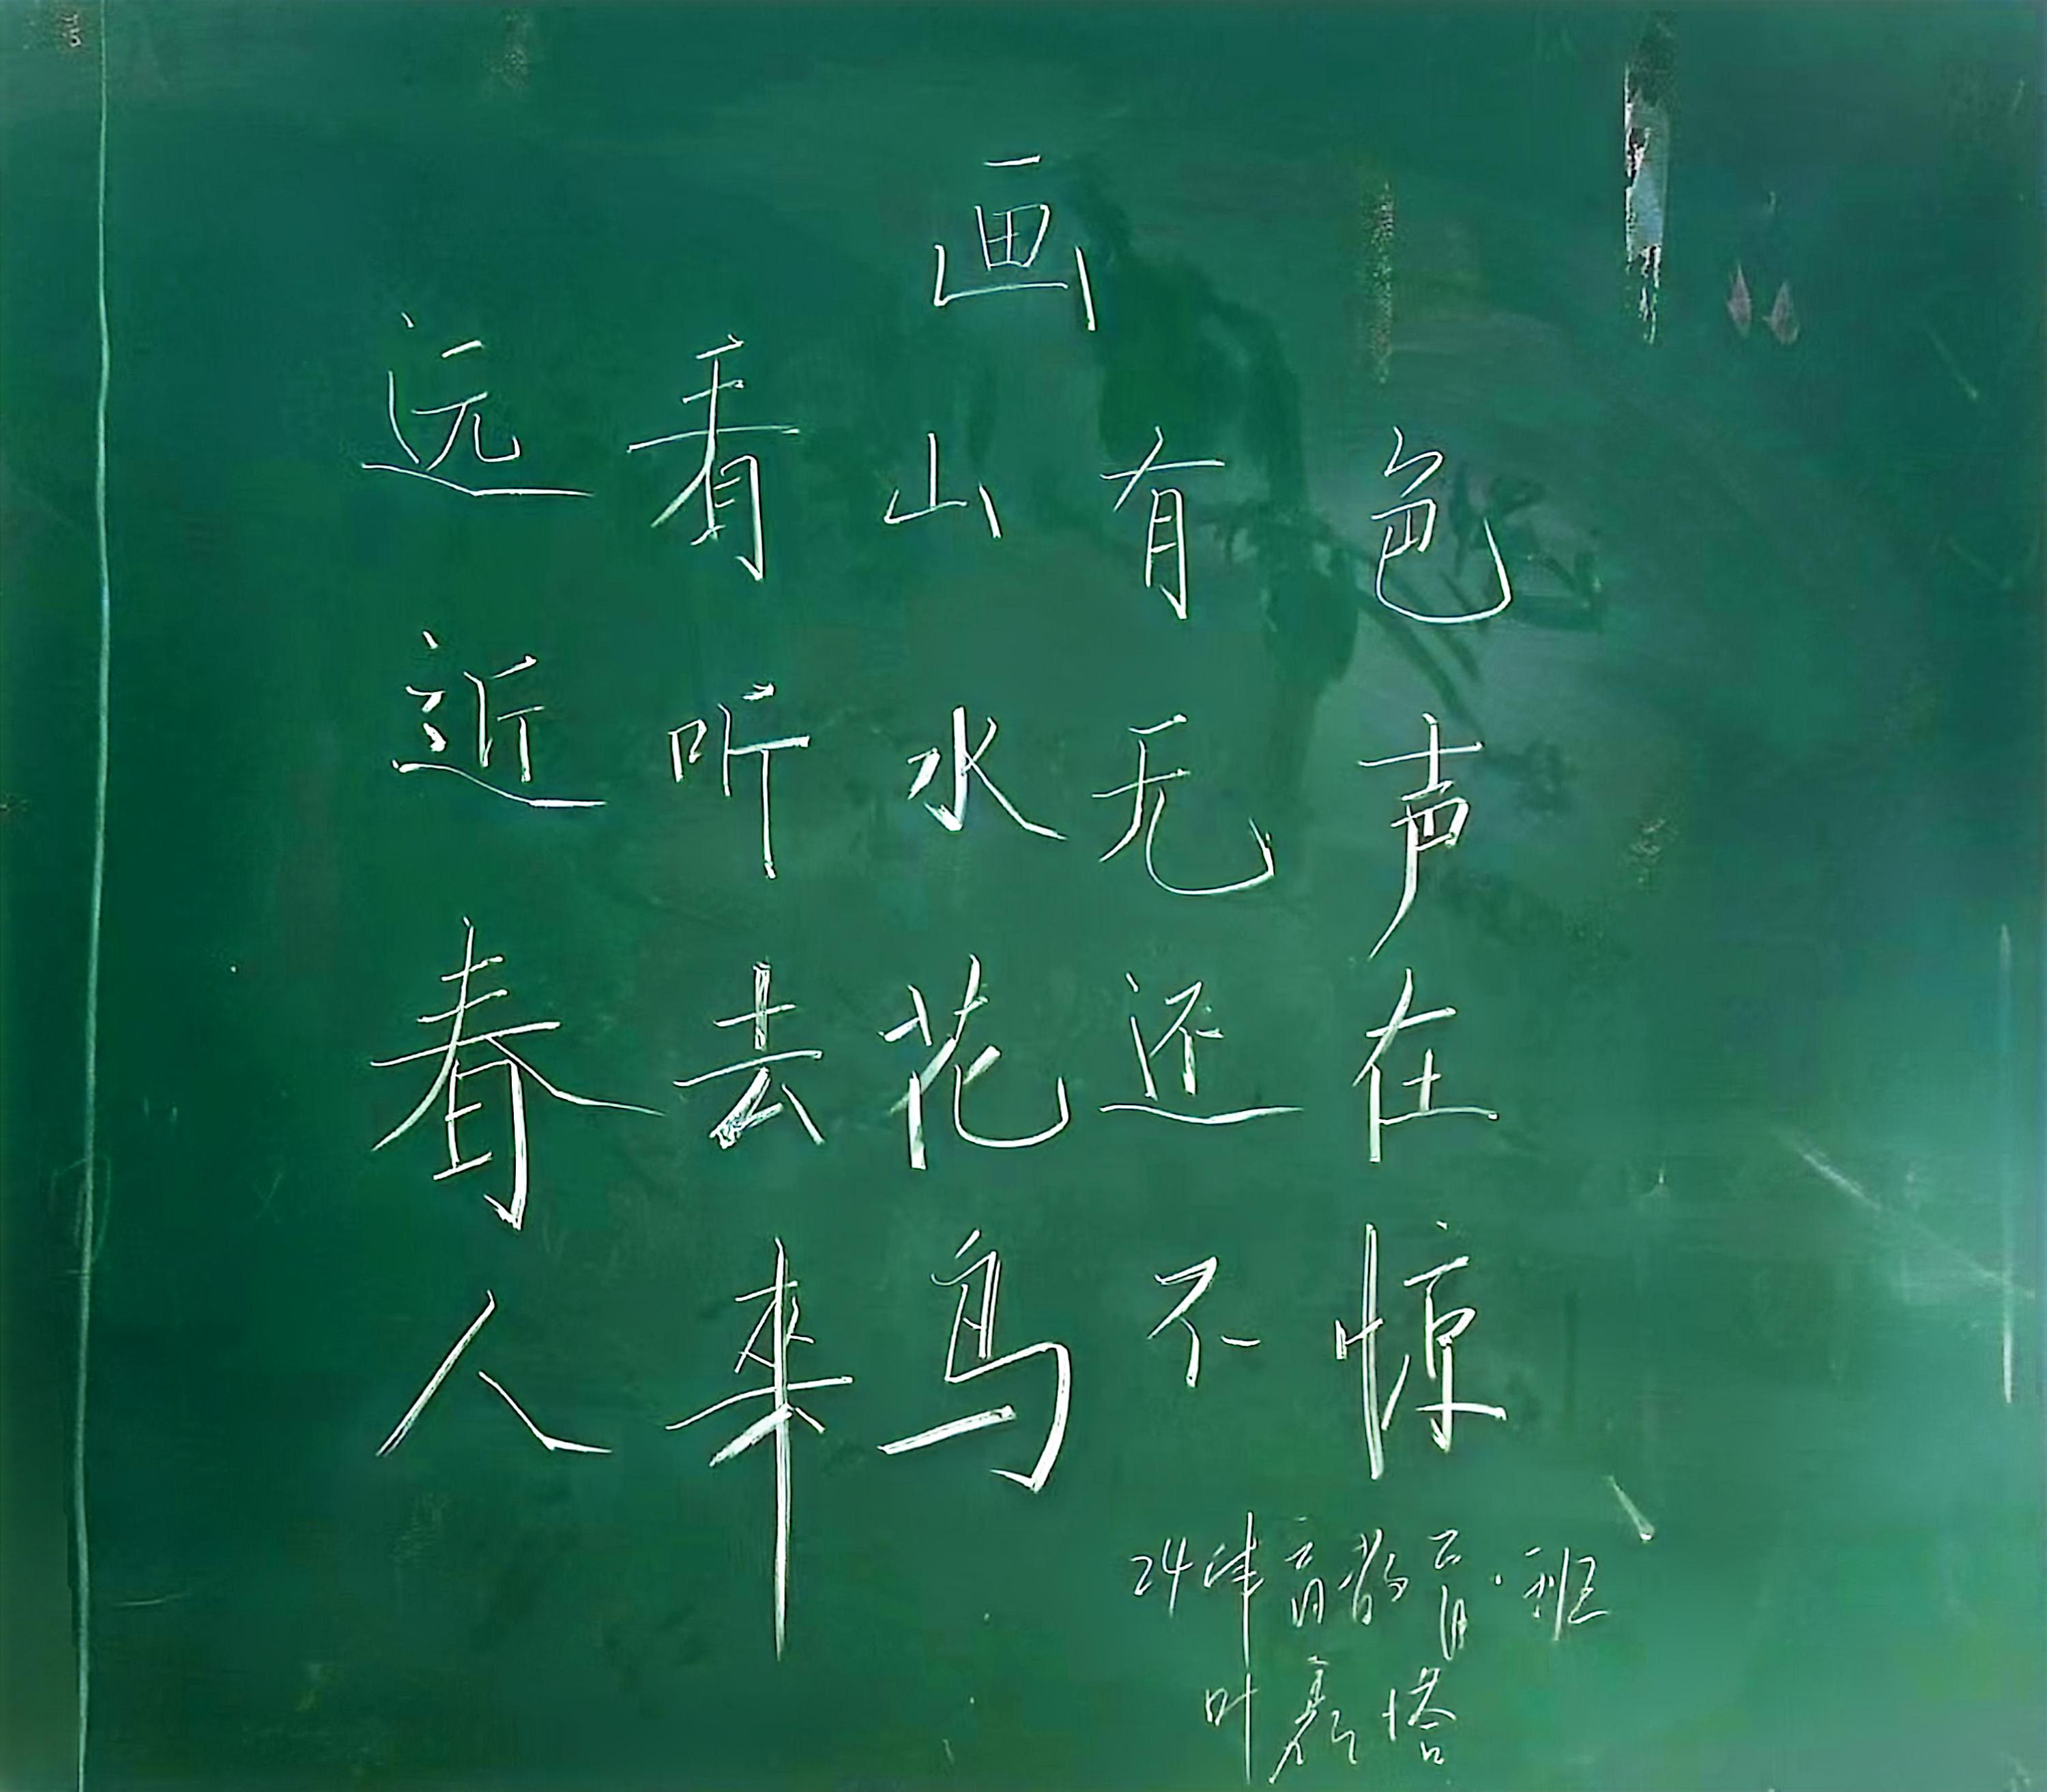 画
远看山有色
近听水无声
春去花还在
人来鸟不惊
24体育教育·班
叶